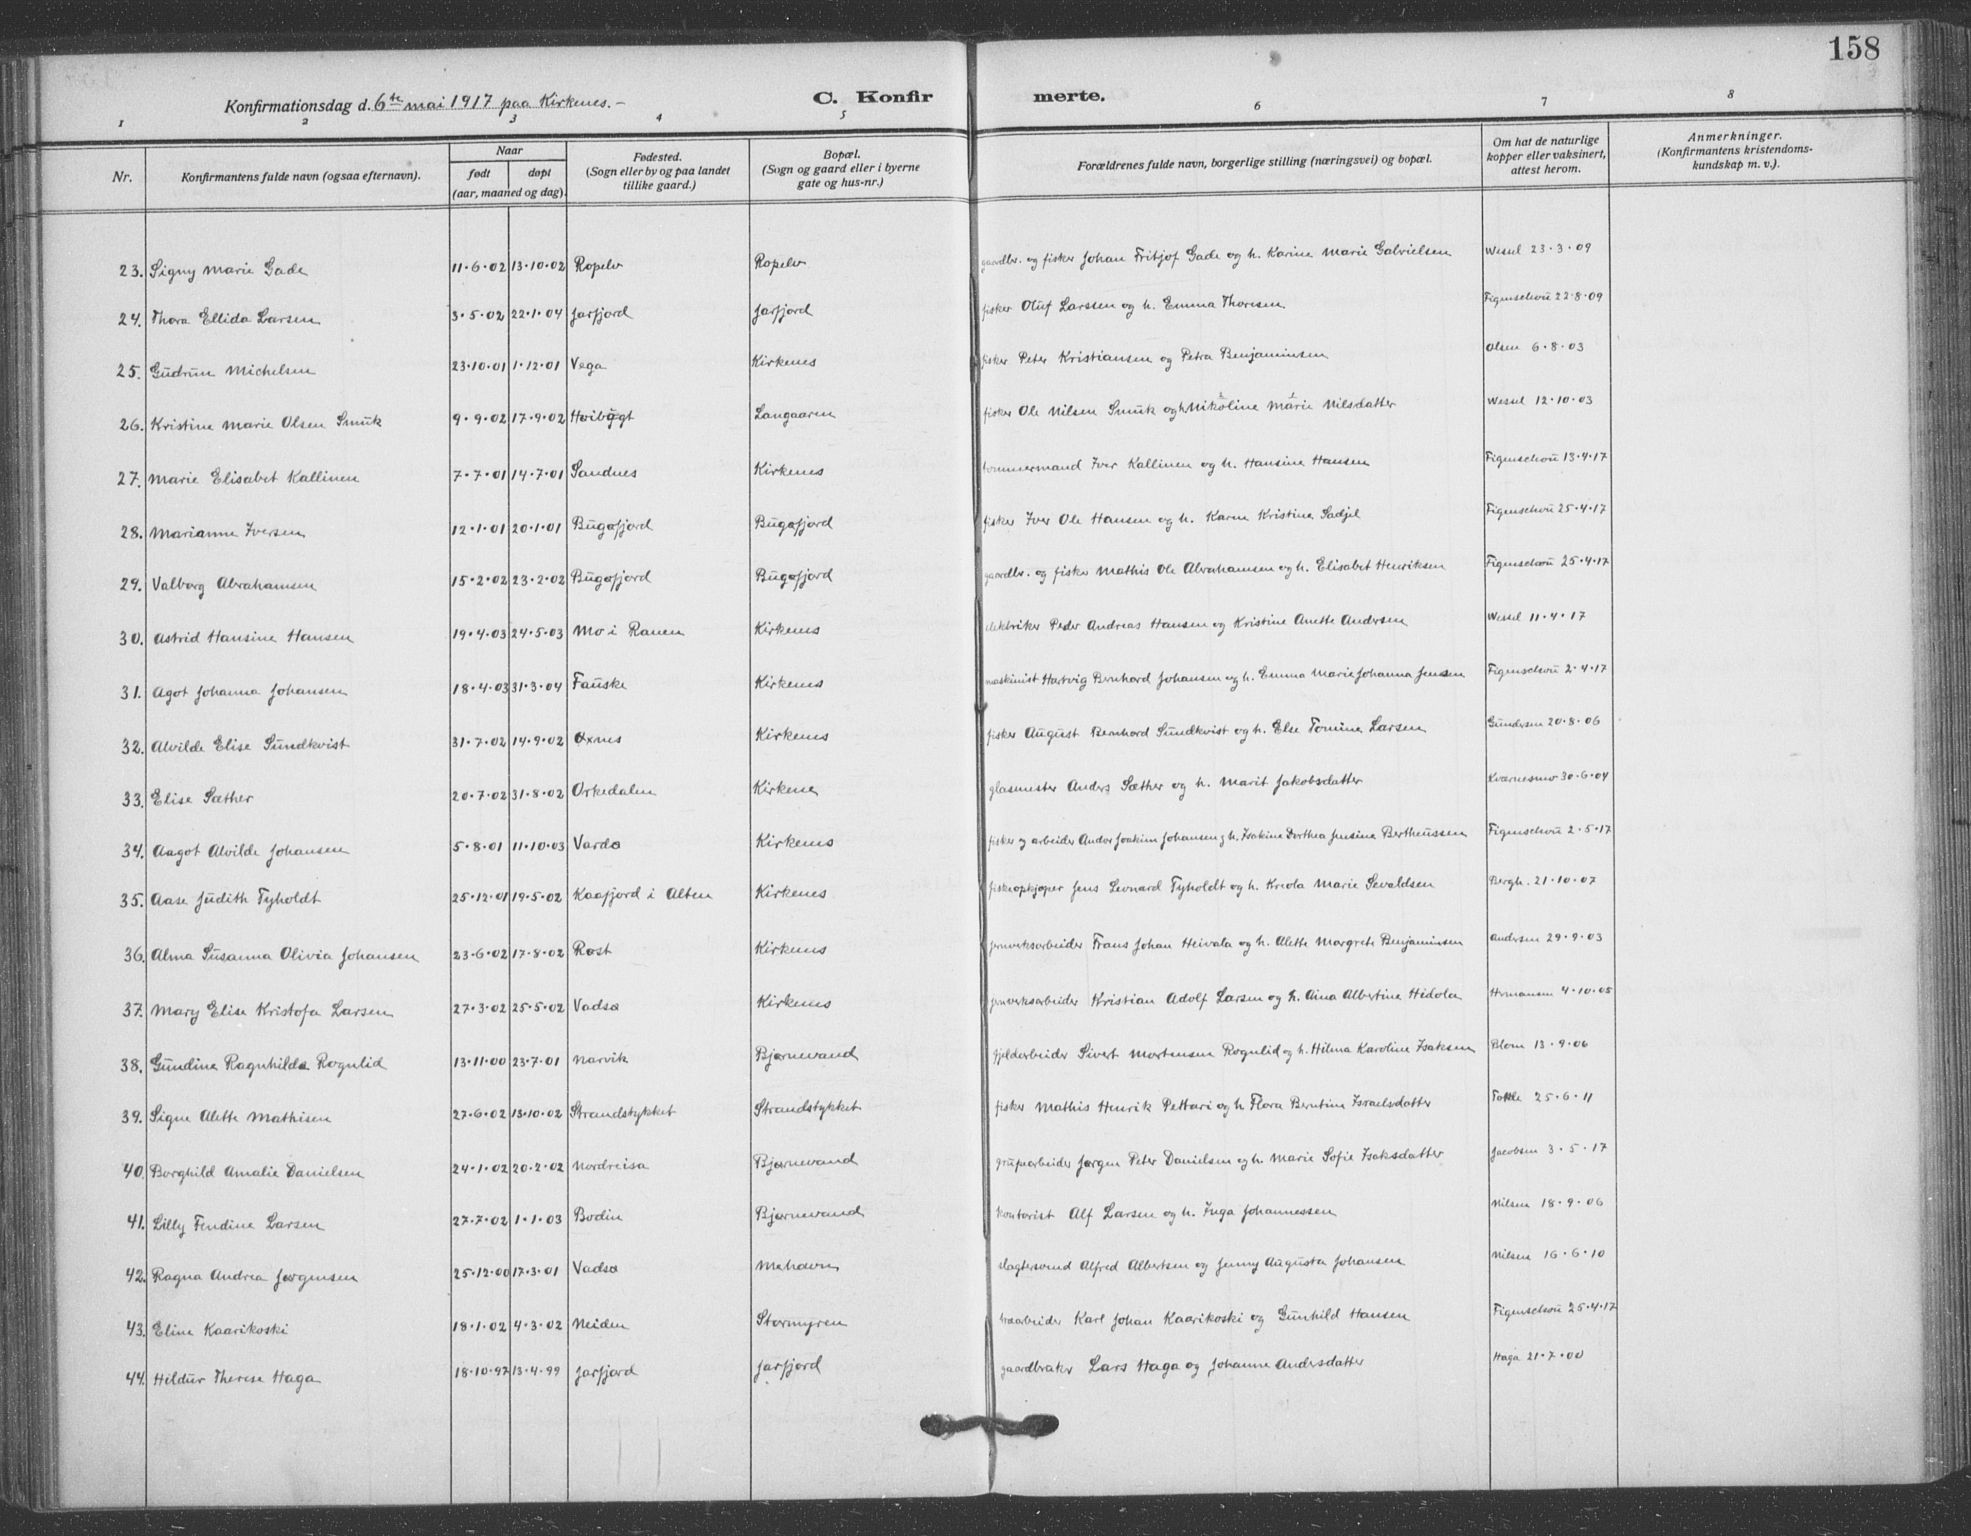 158
Konfirmationsdag d. 6te mai 1917 paa Kirkenes.-
C. Konfirmerte.
1 2 3 4 5 6 7 8
Nr. | Konfirmantens fulde navn (ogsaa efternavn). | Naar født døpt (aar, maaned og dag). | Fødested. (Sogn eller by og paa landet tillike gaard.) | Bopæl. (Sogn og gaard eller i byerne gate og hus-nr.) | Forældrenes fulde navn, borgerlige stilling (næringsvei) og bopæl. | Om hat de naturlige kopper eller vaksinert, attest herom. | Anmerkninger. (Konfirmantens kristendomskundskap m. v.).
23. Signy Marie Gade | 11·6·02 | 13·10·02 | Ropelv | Ropelv | gaardbr. og fisker Johan Fritjof Gade og h. Karine Marie Gabrielsen | Wessel 23·3·09
24. Thora Ellida Larsen | 3·5·02 | 22·1·04 | Jarfjord | Jarfjord | fisker Oluf Larssen og h. Emma Thoresen | Figenschou 22·8·09
25. Gudrun Michelsen | 23·10·01 | 1·12·01 | Vega | Kirkenes | fisker Peter Kristiansen og Petra Benjaminsen | Olsen 6·8·03
26. Kristine Marie Olsen Smuk | 9·9·02 | 17·9·02 | Høibugt | Langøren | fisker Ole Nilsen Smuk og h. Nikoline Marie Nilsdatter | Wessel 12·10·03
27. Marie Elisabet Kallinen | 7·7·01 | 14·7·01 | Sandnes | Kirkenes | tømmermand Iver Kallinen og h. Hansine Hansen | Figenschou 13·4·17
28. Marianne Iversen | 12·1·01 | 20·1·01 | Bugøfjord | Bugøfjord | fisker Iver Ole Hansen og h. Karen Kristine Sadjel | Figenschou 25·4·17
29. Valborg Abrahamsen | 15·2·02 | 23·2·02 | Bugøfjord | Bugøfjord | gaardbr. og fisker Mathis Ole Abrahamsen og h. Elisabet Henriksen | Figenschou 25·4·17
30. Astrid Hansine Hansen | 19·4·03 | 24·5·03 | Mo i Ranen | Kirkenes | elektriker Peder Andreas Hansen og Kristine Anette Andersen | Wessel 11·4·17
31. Agot Johanna Johansen | 18·4·03 | 31·3·04 | Fauske | Kirkenes | maskinist Hartvig Bernhard Johansen og h. Emma Marie Johanna Jensen | Figenschou 2·4·17
32. Alvilde Elise Sundkvist | 31·7·02 | 14·9·02 | Øxnes | Kirkenes | fisker August Bernhard Sundkvist og h. Else Tomine Larsen | Gundersen 20·8·06
33. Elise Sæther | 20·7·02 | 31·8·02 | Orkedalen | Kirkenes | glasmester Anders Sæther og h. Marit Jakobsdatter | Kværnesmo 30·6·04
34. Aagot Alvilde Johansen | 5·8·01 | 11·10·03 | Vardø | Kirkenes | fisker og arbeider Andor Joakim Johansen og h. Isakine Dorthea Jensine Bertheussen | Figenschou 2·5·17
35. Aase Judith Tyholdt | 25·12·01 | 19·5·02 | Kaafjord i Alten | Kirkenes | fiskeopkjøper Jens Leonard Tyholdt og h. Kreola Marie Sevaldsen | Bergh. 21·10·07
36. Alma Susanna Olivia Johansen | 23·6·02 | 17·8·02 | Røst | Kirkenes | jernverksarbeider Frans Johan Heivala og h. Alette Margrete Benjaminsen | Andersen 29·9·03
37. Mary Elise Kristofa Larsen | 27·3·02 | 25·5·02 | Vadsø | Kirkenes | jernverksarbeider Kristian Adolf Larsen og h. Aina Albertine Hidola | Hermansen 4·10·05
38. Gundine Ragnhilda Rognlid | 13·11·00 | 23·7·01 | Narvik | Bjørnevand | fjeldarbeider Sivert Mortensen Rognlid og h. Hilma Karoline Isaksen | Blom 13·9·06
39. Signe Alette Mathisen | 27·6·02 | 13·10·02 | Strandstykket | Strandstykket | fisker Mathis Henrik Pettari og h. Flora Berntine Israelsdatter | 25·6·11
40. Borghild Amalie Danielsen | 24·1·02 | 20·2·02 | Nordreisa | Bjørnevand | grubearbeider Jørgen Peter Danielsen og h. Marie Sofie Isaksdatter | Jacobsen 3·5·17
41. Lilly Fendine Larsen | 27·7·02 | 1·1·03 | Bodin | Bjørnevand | kontorist Alf Larsen og h. Inga Johannessen | Nilsen 18·9·06
42. Ragna Andrea Jørgensen | 25·12·00 | 17·3·01 | Vadsø | Mehavn | slagtersvend Alfred Albertsen og Jenny Augusta Johansen | Nilsen 16·6·10
43. Eline Kaarikoski | 18·1·02 | 4·3·02 | Neiden | Stormyren | træarbeider Karl Johan Kaarikoski og Gunhild Hansen | Figenschou 25·4·17
44. Hildur Therese Haga | 18·10·97 | 13·4·99 | Jarfjord | Jarfjord | gaardbruker Lars Haga og Johanne Andersdatter | Haga 21·7·00